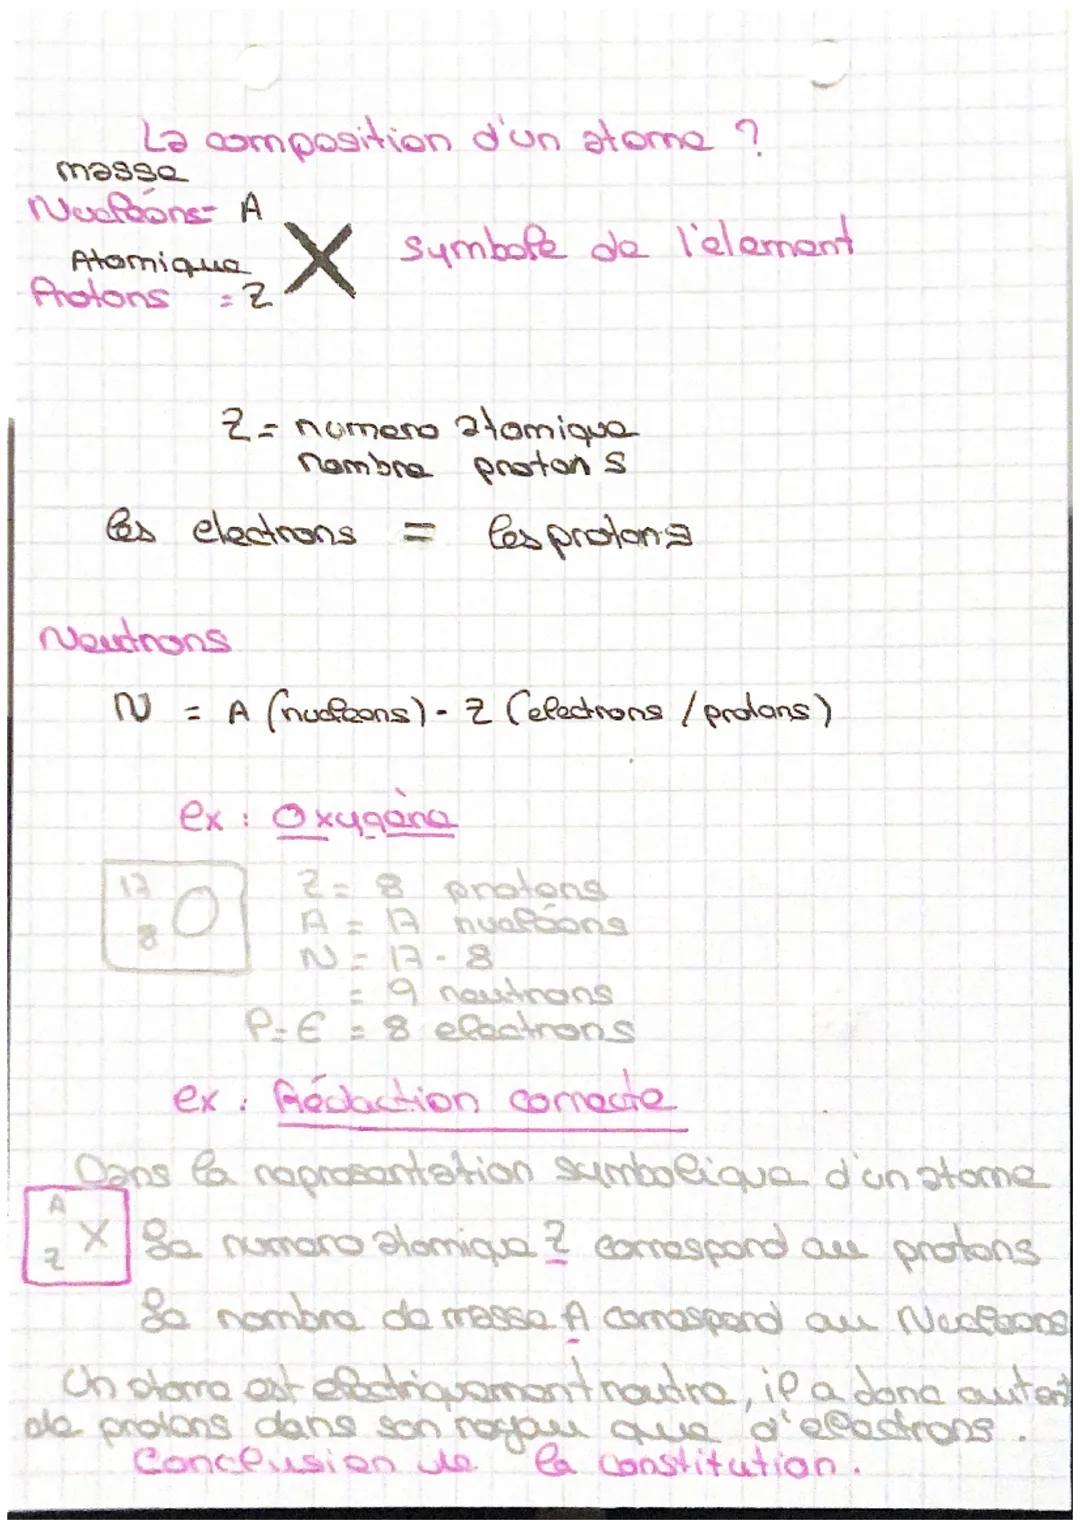 La composition d'un atome ?
masse
Nucléons = A
Atomique
Protons = Z
X symbole de l'element
Z = numero atomique
nombre protons
les electrons = les protons
Neutrons
N = A (nucleons) - Z (electrons / protons)
ex : Oxygène
17
8
O
Z = 8 protons
A = 17 nucléons
N = 17 - 8
= 9 neutrons
P = E = 8 electrons
ex : Rédaction correcte
Dans la representation symbolique d'un atome
A
Z
X
Le numero atomique Z correspond au protons
Le nombre de masse A correspond au Nucleons
Un atome est electriquement neutre, il a donc autant
de protons dans son noyau que d'electrons.
Conclusion de la constitution.